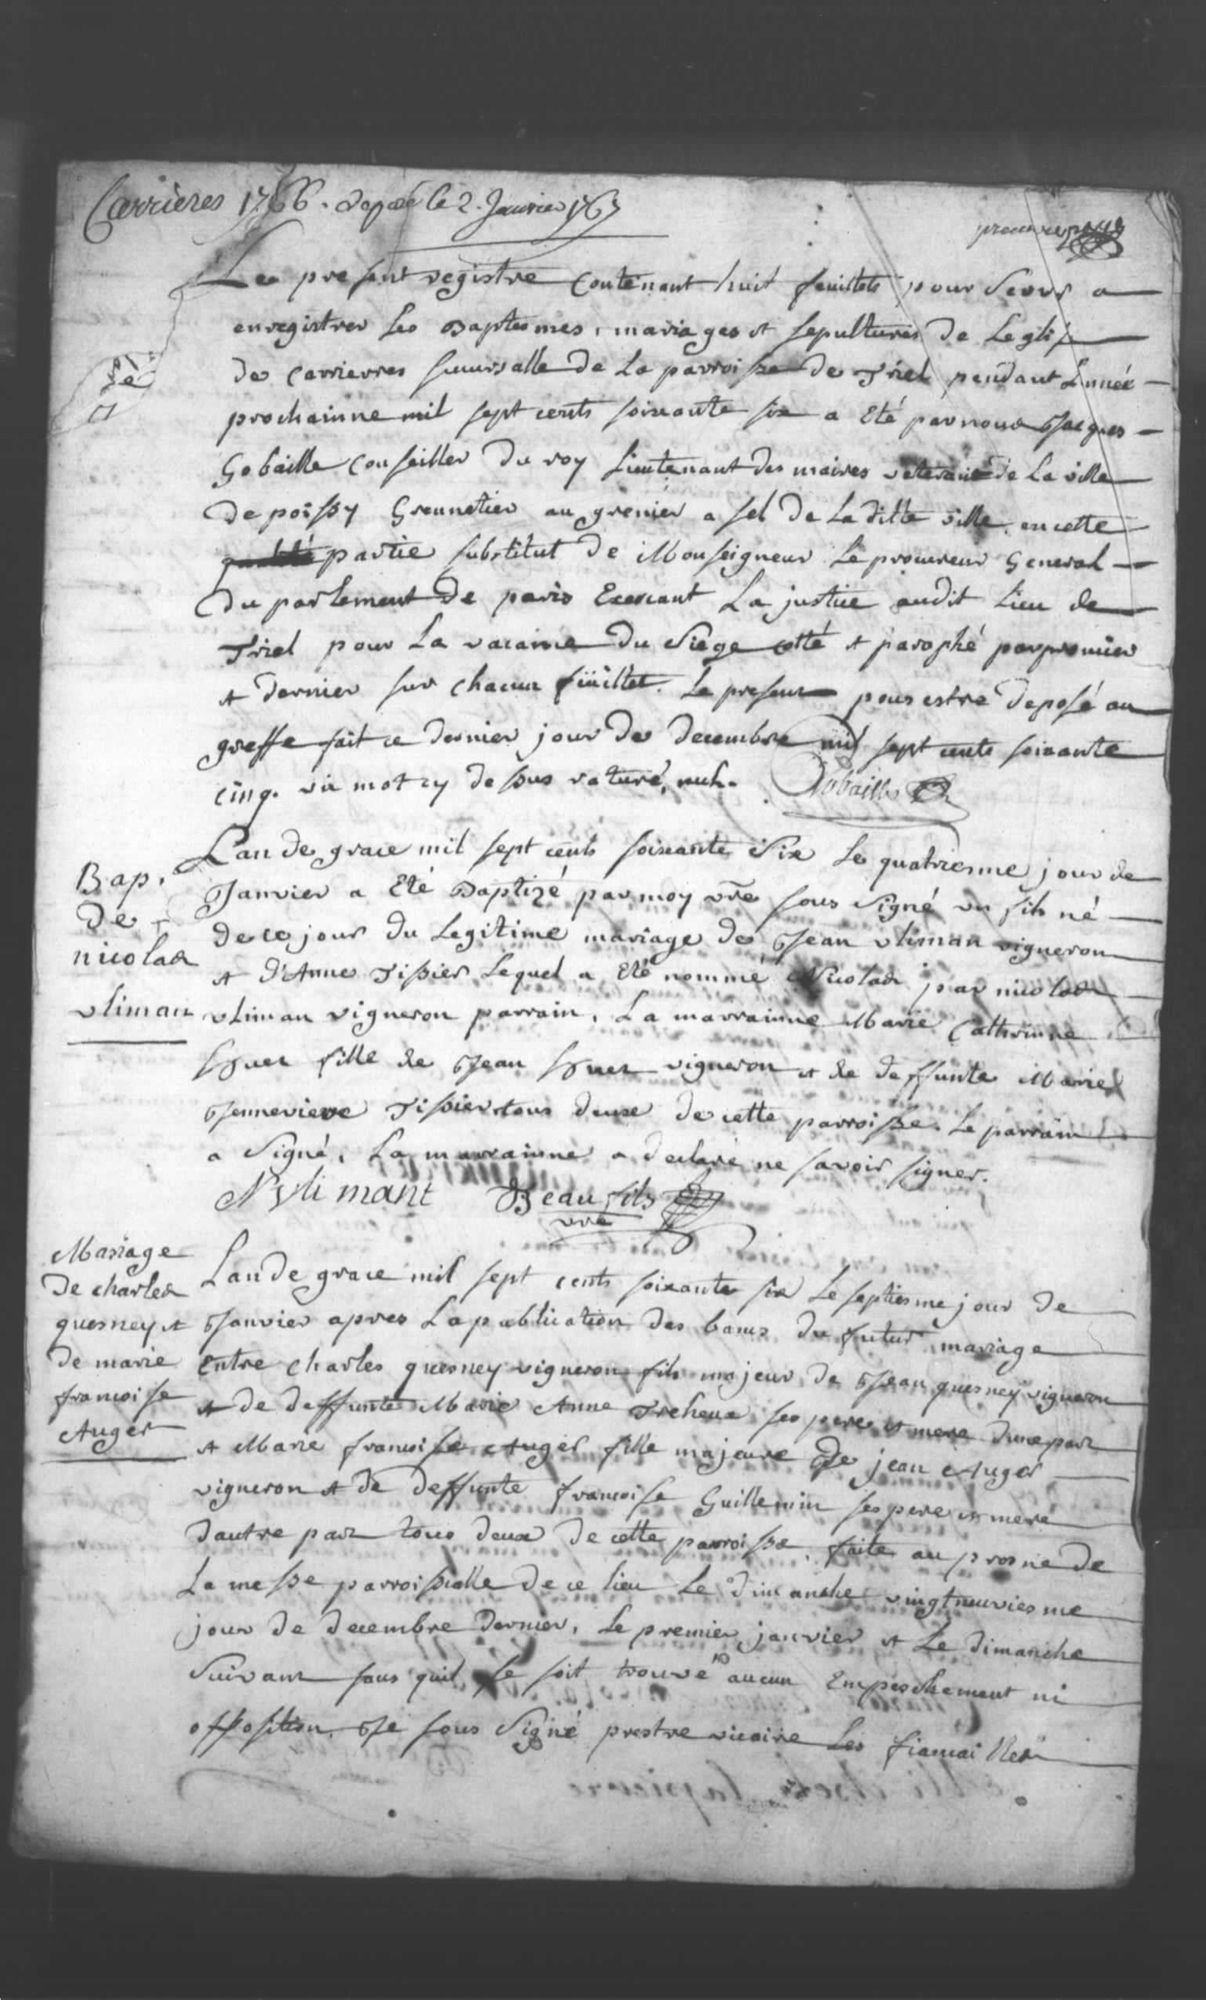 Carrières 1766. deposé le 2. Janvier 1767
premiere page
Le present registre Contenant huit feuillets pour servir a
enregistrer les Baptesmes, mariages et sepultures de Leglise
de Carrieres succursalle de la parroisse de Triel pendant Lannée
prochainne mil sept cents soixante six a Eté par nous Jacques
Gobaille Conseiller du roy Lieutenant des maires veteran de La ville
de poissy Grennetier au grenier a sel de La ditte ville, en cette
partie substitut de Monseigneur Le procureur General
du parlement de paris Exercant La justice audit Lieu de
Triel pour La vacance du siege cotté et paraphé par premier
et dernier sur chacun feüillet. Le present pour estre deposé au
greffe fait ce dernier jour de decembre mil sept cents soixante
cinq. un mot cy dessus raturé, nul. Gobaille
Bap.
de
nicolas
vliman
Lan de grace mil sept cents soixante six le quatriesme jour de
Janvier a Eté Baptizé par moy vre sous signé un fils né
de ce jour du Legitime mariage de Jean vliman vigneron
et d'Anne Tissier Lequel a Eté nommé Nicolas par nicolas
vliman vigneron parrain, La marrainne Marie Catherinne
huet fille de Jean huet vigneron et de deffunte Marie
Jennevieve Tissier tous deux de cette parroisse. Le parrain
a signé, La marrainne a declaré ne savoir signer.
N vli mant Beaufils
vre
Mariage
de charles
quesney et
de marie
francoise
Auger
Lan de grace mil sept cents soixante six Le septiesme jour de
Janvier apres La publication des bancs du futur mariage
Entre Charles quesney vigneron fils majeur de Jean quesney vigneron
et de deffunte Marie Anne Treheux ses pere et mere dune part
et Marie francoise Auger fille majeure de jean Auger
vigneron et de deffunte francoise Guillemin ses pere et mere
dautre part tous deux de cette parroisse, faite au prosne de
La messe parroissialle de ce lieu Le dimanche vingtneuviesme
jour de decembre dernier, Le premier janvier et Le dimanche
suivant sans quil se soit trouvé aucun Empeschement ni
opposition. Je sous signé prestre vicaire Les fiancailles